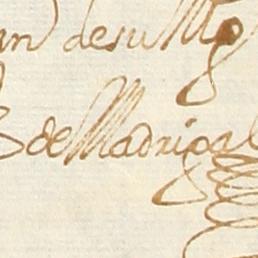 de su Mg
de Madrigal